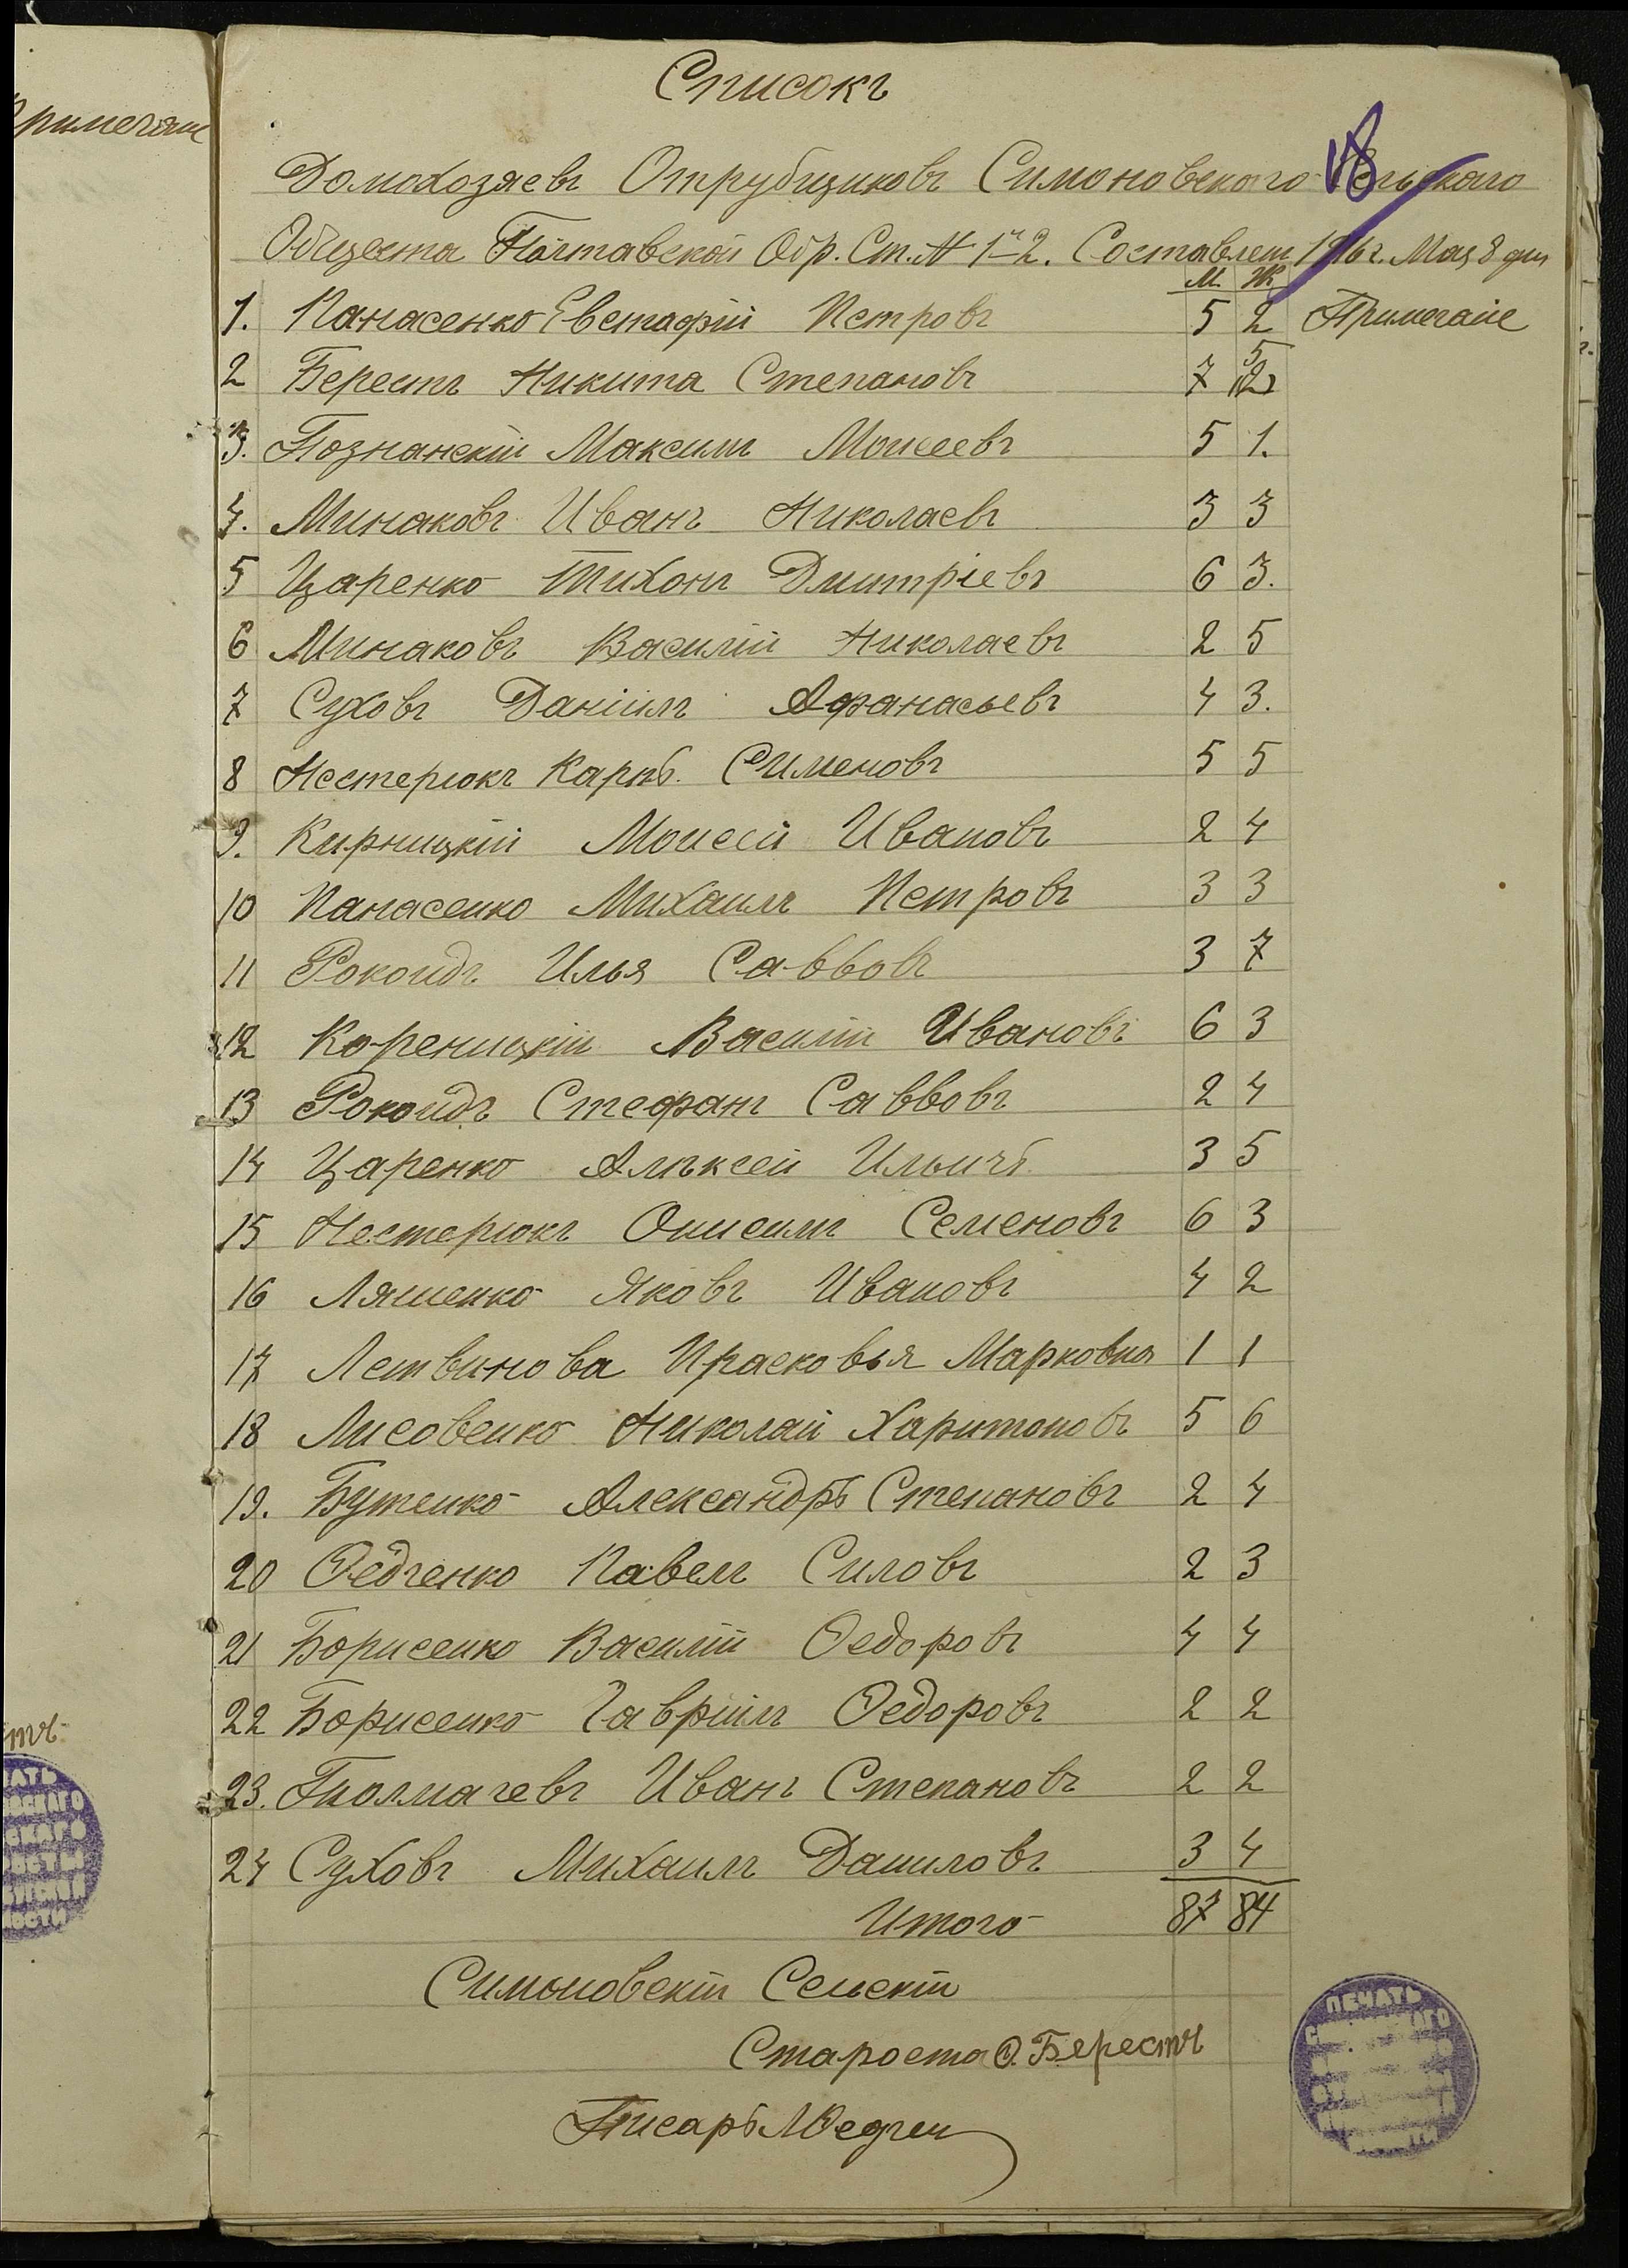 Примечаніе
Списокъ
18
Домохозяевъ Отрубщиковъ Симоновского Сельскаго
Общества Полтавской Обр. Ст. № 1-2. Составлен 1916 г. Мая 8 дня
М. Ж.
1. Панасенко Евстафій Петровъ 5 2 Примечаие
2 Берестъ Никита Степановъ 7 5
3. Познанскій Максимъ Моисеевъ 5 1.
4. Минаковъ Иванъ Николаевъ 3 3
5 Царенко Тихонъ Дмитріевъ 6 3.
6 Минаковъ Василій Николаевъ 2 5
7 Суховъ Даніилъ Афанасьевъ 4 3.
8 Нестерюкъ Карпъ. Сименовъ 5 5
9. Кирницкій Моисей Ивановъ 2 4
10 Панасенко Михаилъ Петровъ 3 3
11 Рокоидъ Илья Саввовъ 3 7
12 Кореницкій Василій Ивановъ 6 3
13 Рокоидъ Стефанъ Саввовъ 2 4
14 Царенко Алъксей Ильичъ 3 5
15 Нестерюкъ Онисимъ Семеновъ 6 3
16 Ляшенко Яковъ Ивановъ 4 2
17 Летвинова Прасковья Марковна 1 1
18 Лисовенко Николай Харитоновъ 5 6
19. Бутенко Александръ Степановъ 2 4
20 Ѳедченко Павелъ Силовъ 2 3
21 Борисенко Василій Ѳедоровъ 4 4
22 Борисенко Гавріилъ Ѳедоровъ 2 2
23. Толмачевъ Иванъ Степановъ 2 2
24 Суховъ Михаилъ Даниловъ 3 4
Итого 87 84
Симоновскій Сельскій
Староста Ѳ. Берестъ
Писарь
ПЕЧАТЬ